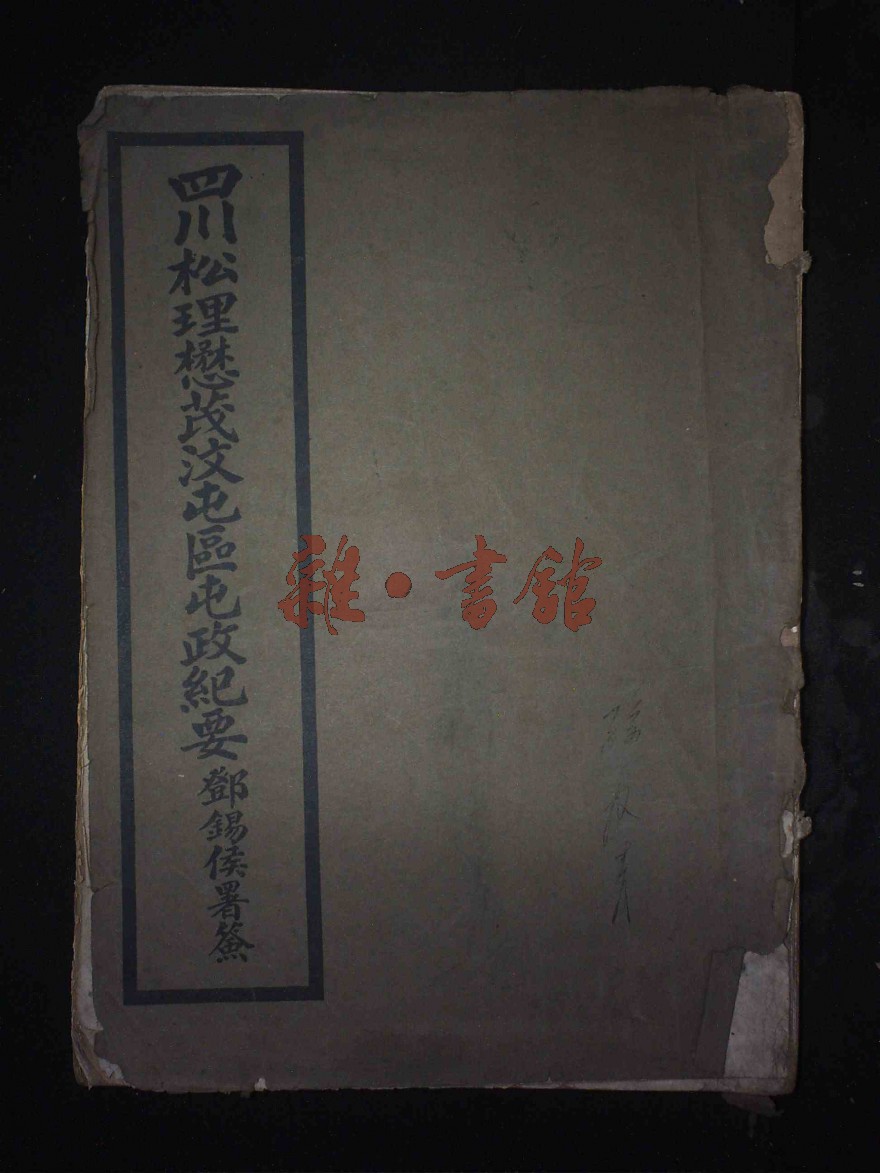 四川松理懋茂汶屯區屯政紀要
鄧錫侯署籤
雜·書館